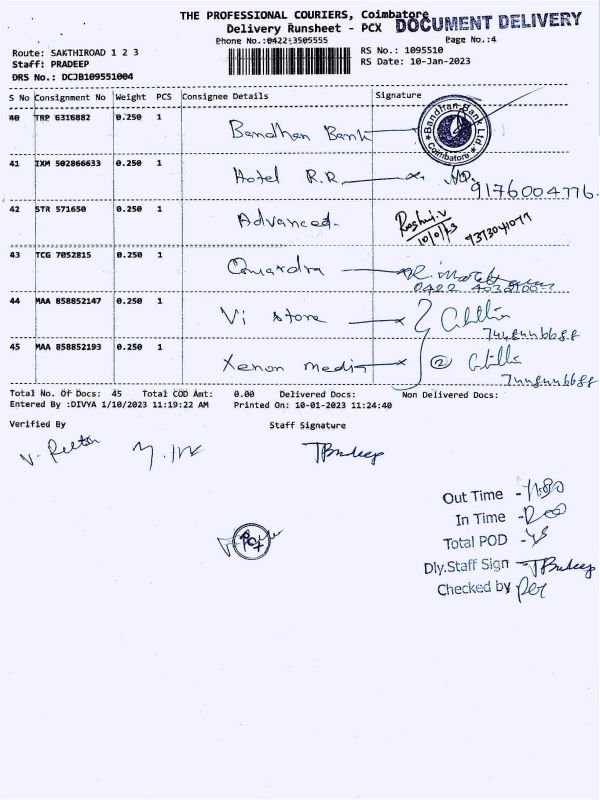 THE PROFESSIONAL COURIERS, Coimbatore
DOCUMENT DELIVERY
Delivery Runsheet - PCX
Phone No.:0422-3505555
Page No.:4
Route: SAKTHIROAD 1 2 3
RS No.: 1095510
Staff: PRADEEP
RS Date: 10-Jan-2023
DRS No.: DCJB109551004
S No Consignment No Weight PCS Consignee Details Signature
40 TRP 6316882 0.250 1 Bandhan Bank
Bandhan Bank Ltd
Coimbatore
41 IXM 502866633 0.250 1 Hotel R.R.
9176004776.
42 STR 571650 0.250 1 Advanced.
Roshni.V
9373041079
43 TCG 7052815 0.250 1
0422
44 MAA 858852147 0.250 1 Vi store
7448446688
45 MAA 858852193 0.250 1 Xenon media
7448446688
Total No. Of Docs: 45 Total COD Amt: 0.00 Delivered Docs: Non Delivered Docs:
Entered By :DIVYA 1/10/2023 11:19:22 AM Printed On: 10-01-2023 11:24:40
Verified By Staff Signature
Out Time -
In Time -
Total POD - 45
Dly.Staff Sign -
Checked by